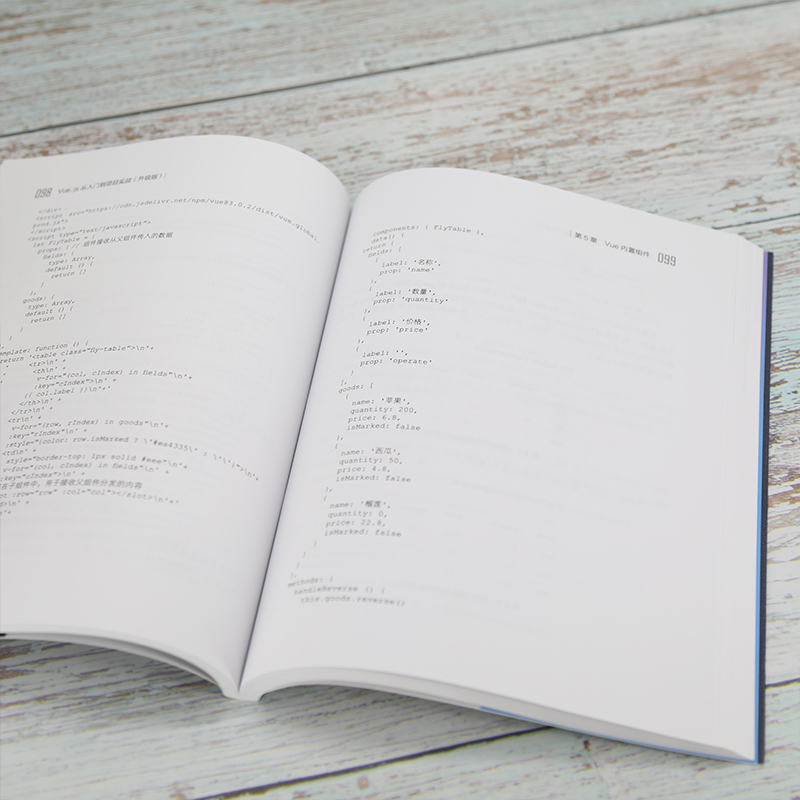 098 Vue.js 从入门到项目实战（升级版）
</div>
<script src="https://cdn.jsdelivr.net/npm/vue@3.0.2/dist/vue.global.
prod.js">
</script>
<script type="text/javascript">
let FlyTable = {
props: { // 组件接收从父组件传入的数据
fields: {
type: Array,
default () {
return []
}
},
goods: {
type: Array,
default () {
return []
}
}
},
template: function () {
return '<table class="fly-table">\n'+
' <tr>\n' +
<th\n' +
v-for="(col, cIndex) in fields"\n'+
:key="cIndex">\n' +
{{ col.label }}\n'+
</th>\n' +
</tr>\n' +
<tr\n' +
v-for="(row, rIndex) in goods"\n'+
:key="rIndex"\n' +
:style="{color: row.isMarked ? \'#ea4335\' : \'\'}">\n'+
<td\n' +
style="border-top: 1px solid #eee"\n'+
v-for="(col, cIndex) in fields"\n' +
:key="cIndex">\n' +
在子组件中，用于接收父组件分发的内容
:row="row" :col="col"></slot>\n'+
\n' +
\n'+
第 5 章 Vue 内置组件 099
components: { FlyTable },
data() {
return {
fields: [
{
label: '名称',
prop: 'name'
},
{
label: '数量',
prop: 'quantity'
},
{
label: '价格',
prop: 'price'
},
{
label: '',
prop: 'operate'
}
],
goods: [
{
name: '苹果',
quantity: 200,
price: 6.8,
isMarked: false
},
{
name: '西瓜',
quantity: 50,
price: 4.8,
isMarked: false
},
{
name: '榴莲',
quantity: 0,
price: 22.8,
isMarked: false
}
]
}
},
methods: {
handleReverse () {
this.goods.reverse()